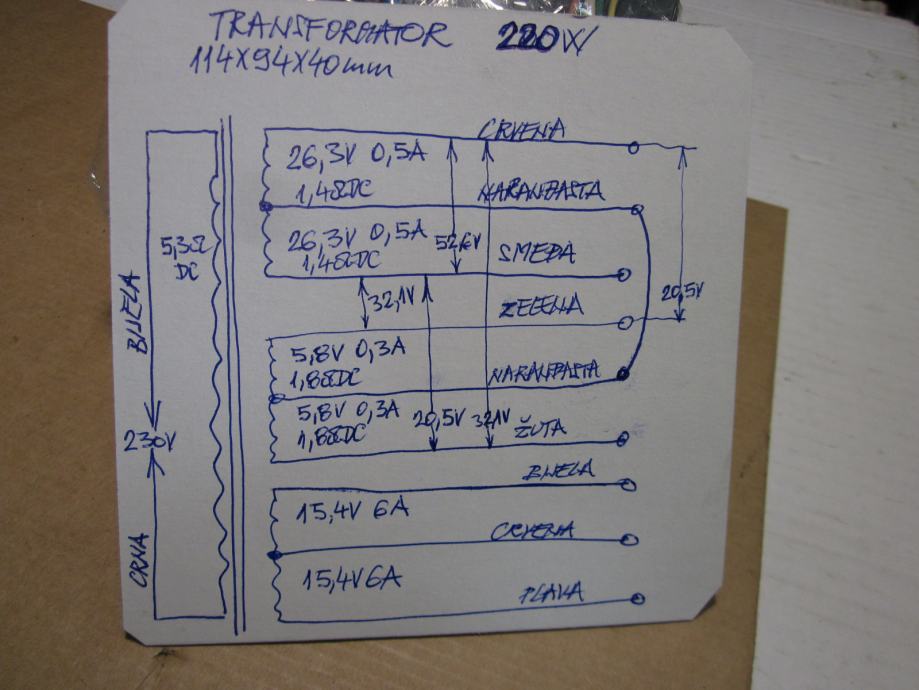 TRANSFORMATOR 220W
114X94X40mm
CRVENA
26,3V 0,5A
1,4ΩDC
NARANĐASTA
26,3V 0,5A
1,4ΩDC
52,6V
SMEĐA
5,3Ω
DC
BIJELA
32,1V
ZELENA
20,5V
5,8V 0,3A
1,8ΩDC
NARANĐASTA
5,8V 0,3A
1,8ΩDC
20,5V
32,1V
ŽUTA
230V
BIJELA
15,4V 6A
CRVENA
CRNA
15,4V 6A
PLAVA